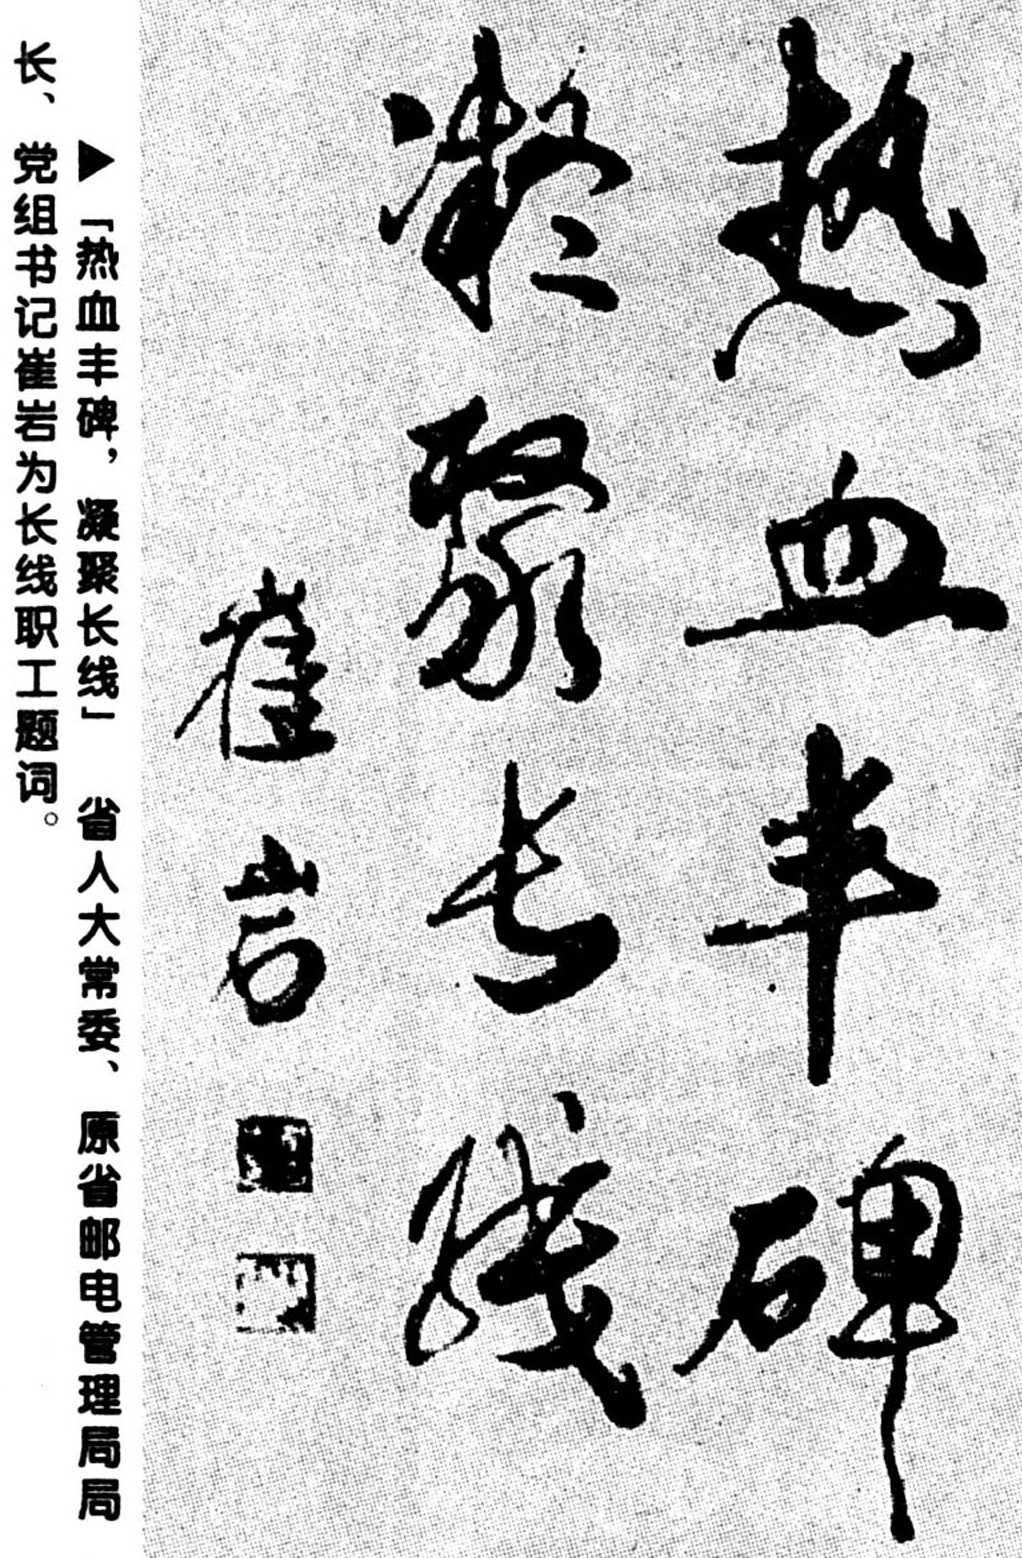 热血丰碑
凝聚长线
崔岩
▶「热血丰碑，凝聚长线」 省人大常委、原省邮电管理局局
长、党组书记崔岩为长线职工题词。